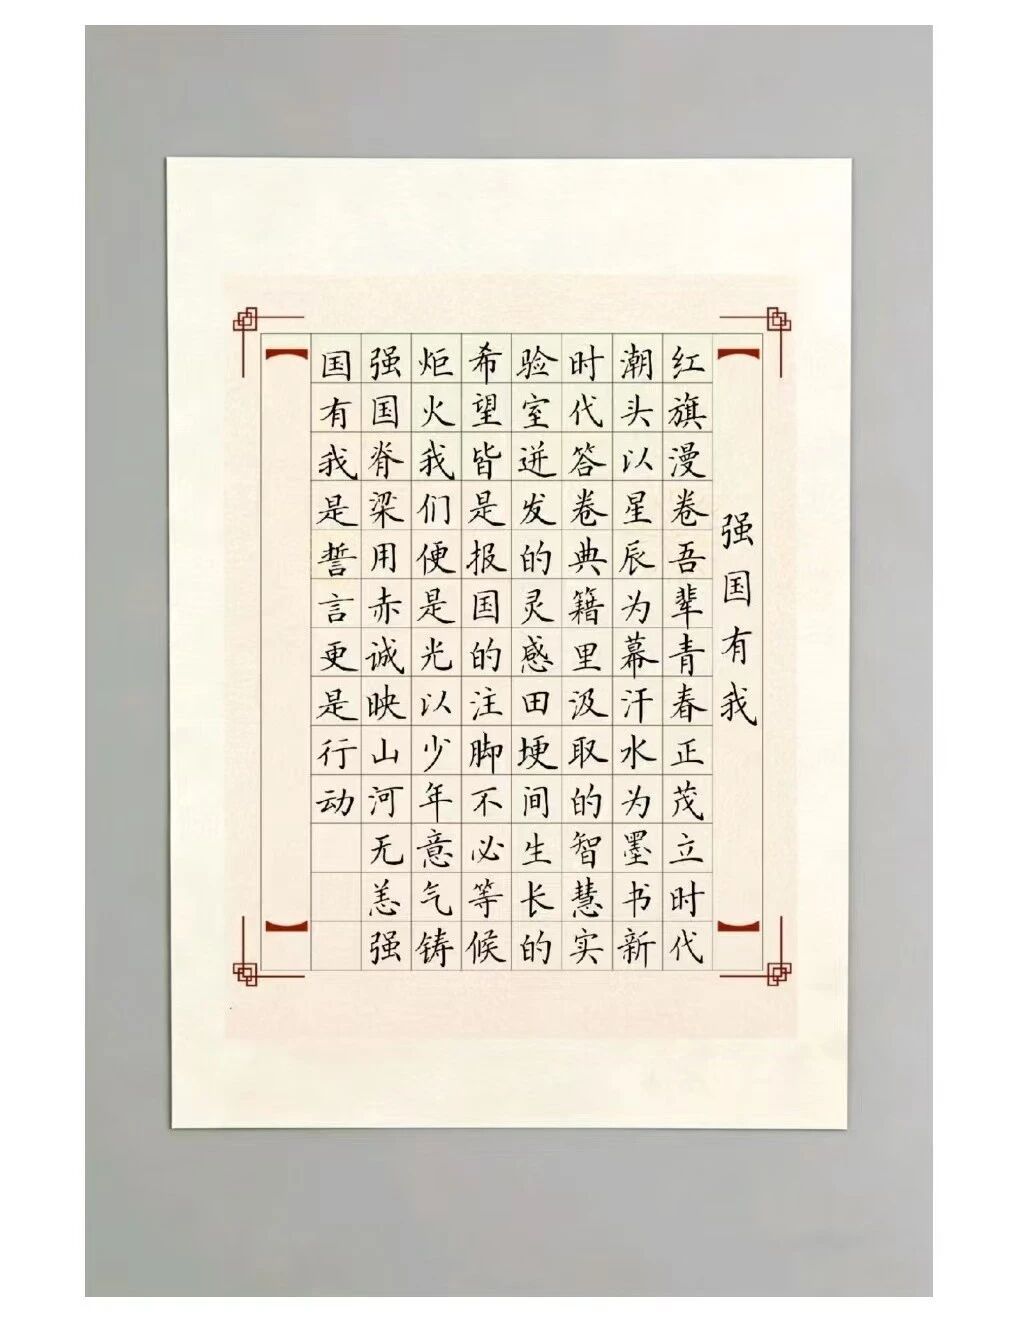 强国有我
红旗漫卷吾辈青春正茂立时代
潮头以星辰为幕汗水为墨书新
时代答卷典籍里汲取的智慧实
验室迸发的灵感田埂间生长的
希望皆是报国的注脚不必等候
炬火我们便是光以少年意气铸
强国脊梁用赤诚映山河无恙强
国有我是誓言更是行动